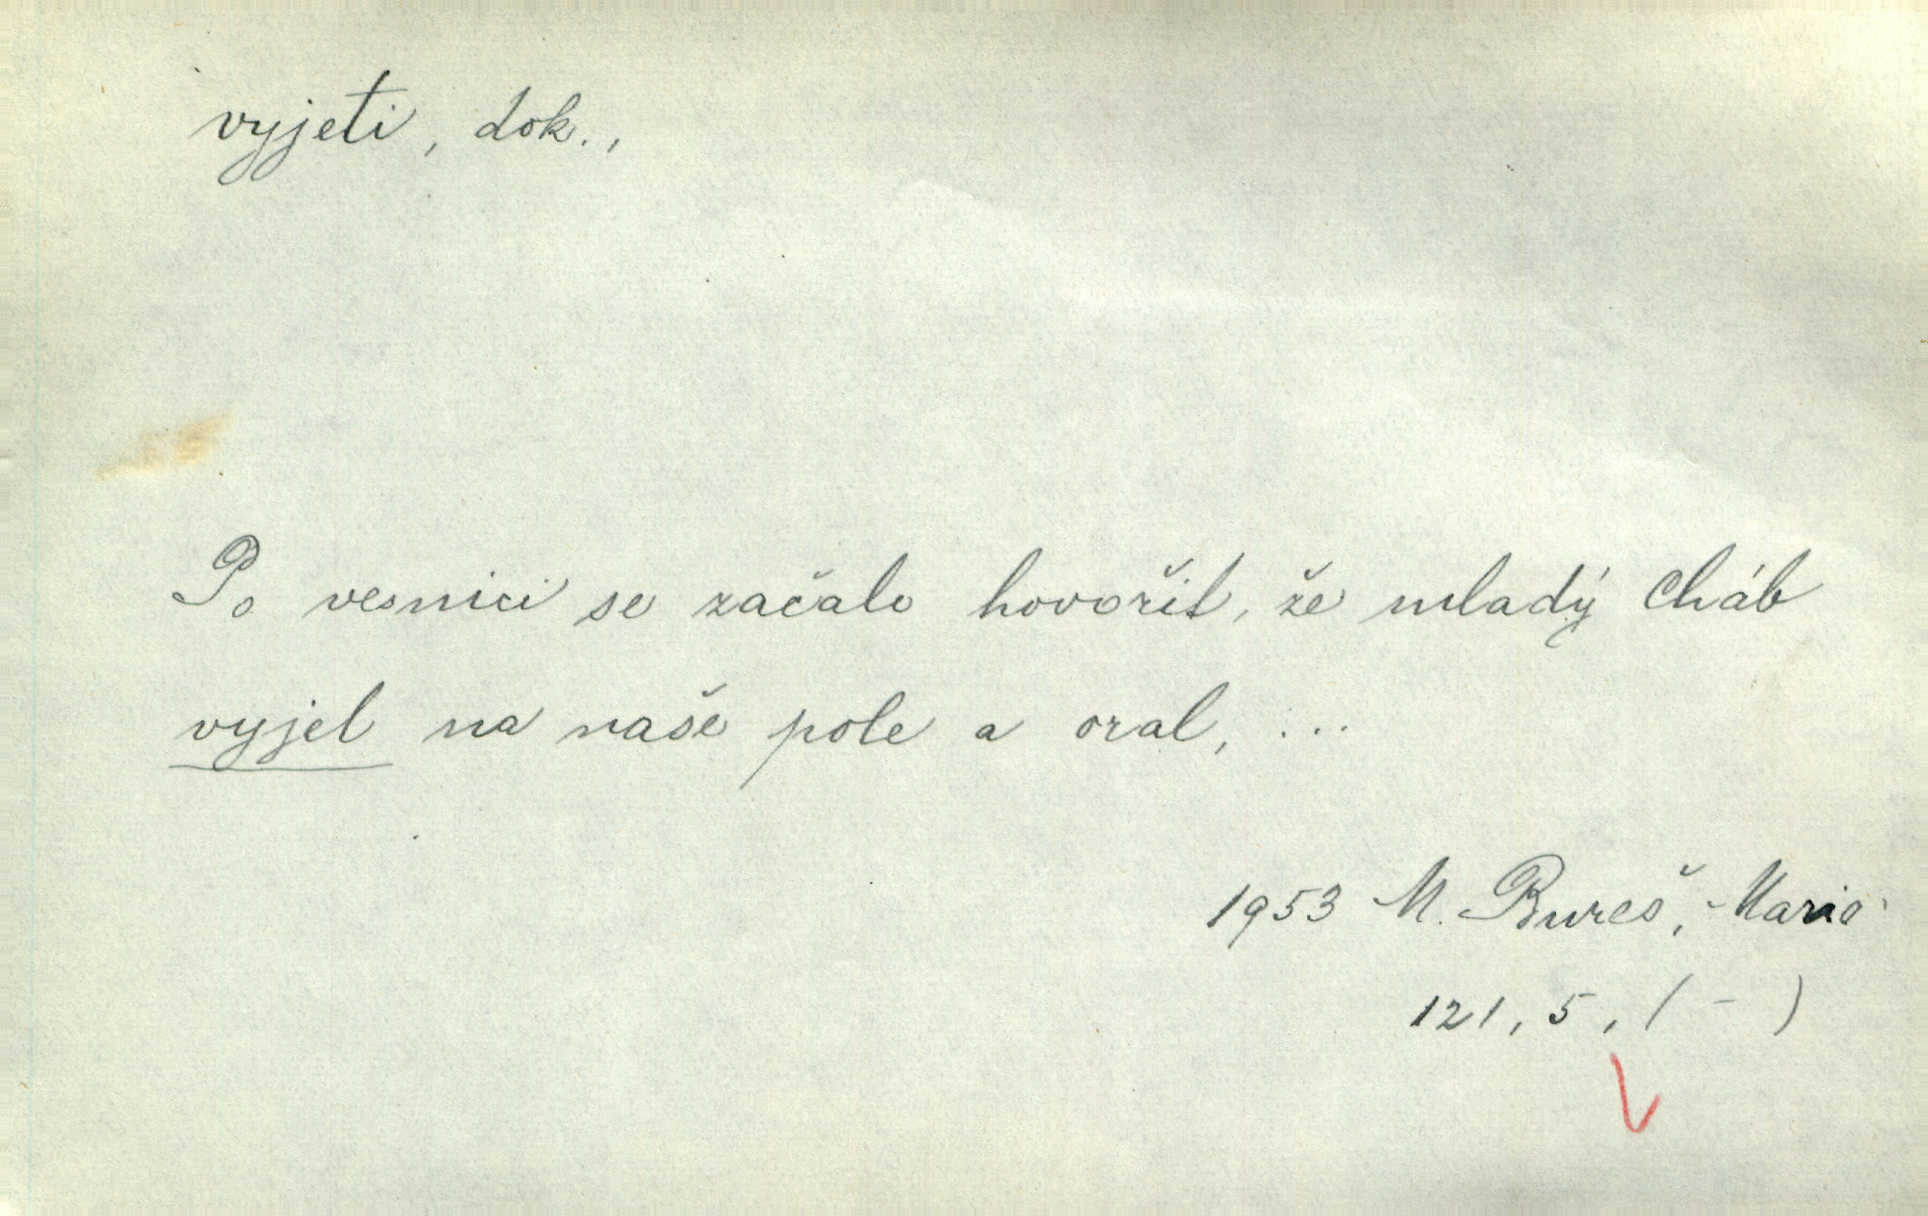 vyjeti, dok.,
Po vesnici se začalo hovořit, že mladý Cháb
vyjel na naše pole a oral, ...
1953 M. Bureš, Marie
121, 5, ( - )